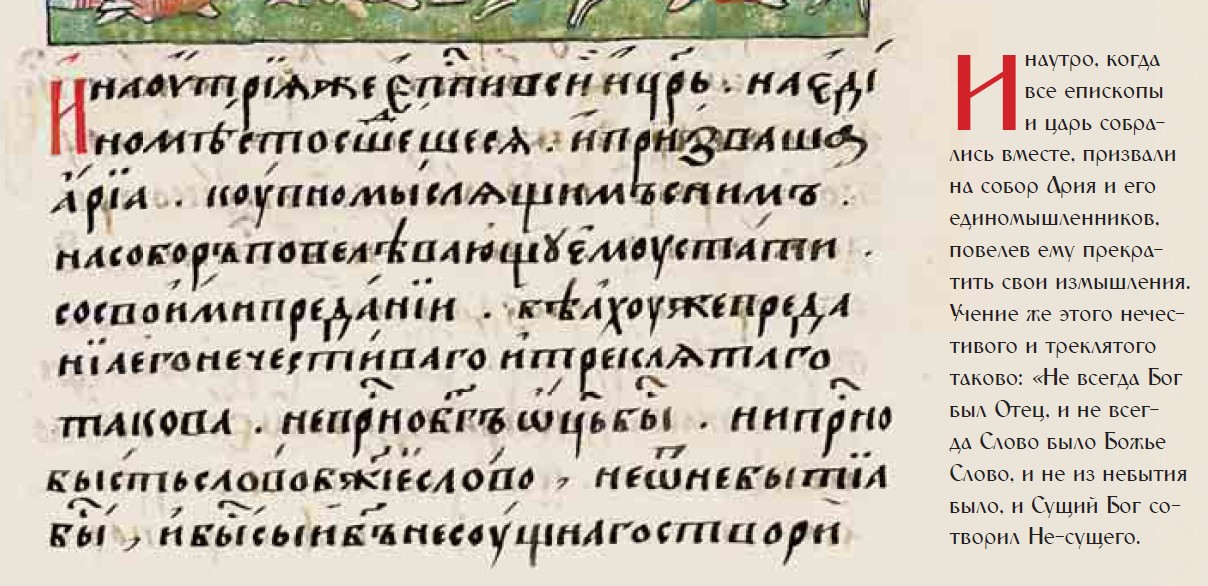 И҆наоутрїѧже є҆пⷭ҇пивсѝ ицр҃ь . наєді
номѣстосшеⷣшесѧ . и҆призваша
а҆рїа . коупномыслѧщимъснимъ .
насоборъ повелѣвающꙋ є҆моустати .
сосвоимипреда́нїи . бѣахоужепреда
нїаегонечестиваго итреклѧтаго
такова . непрⷭ҇нобг҃ъ ѿц҃ьбы̀ . нипрⷭ҇но
бы́стьсловобж҃їесло́во , неѿнебытїа
бы̀ , и҆бы̀сыйбг҃ънесоу́щагостворѝ
Инаутро, когда
все епископы
и царь собра-
лись вместе, призвали
на собор Ария и его
единомышленников,
повелев ему прекра-
тить свои измышления.
Учение же этого нечес-
тивого и треклятого
таково: «Не всегда Бог
был Отец, и не всег-
да Слово было Божье
Слово, и не из небытия
было, и Сущий Бог со-
творил Не-сущего.